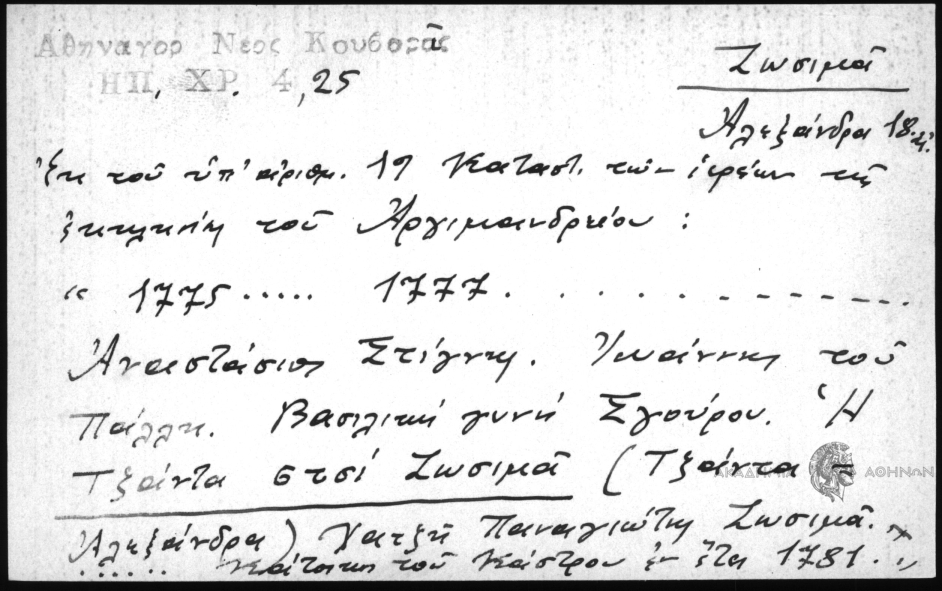 Αθηναγορ Νεος Κουβαρᾶς
ΗΠ. ΧΡ. 4, 25
Ζωσιμᾶ
Ἀλεξάνδρα 18
Ἐκ τοῦ ὑπ' ἀριθμ. 19 Καταστ. τῶν ἱερέων τῆς
ἐκκλησίας τοῦ Ἀρχιμανδρείου :
“ 1775 ..... 1777. . . . . . . . . . . .
Ἀναστάσιος Στίγνης. Ἰωάννης τοῦ
Πάλλη. Βασιλική γυνή Σγούρου. Ἡ
Τζάντα στσί Ζωσιμᾶ (Τζάντα =
Ἀλεξάνδρα) Χατζῆ Παναγιώτη Ζωσιμᾶ.
...... κάτοικος τοῦ Κάστρου ἐν ἔτει 1781. "
ΑΚΑΔΗΜΙΑ ΑΘΗΝΩΝ